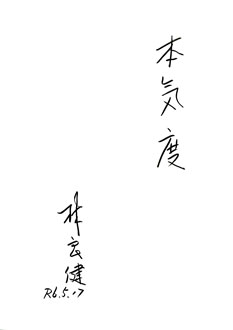 本気度
林良健
R6.5.17